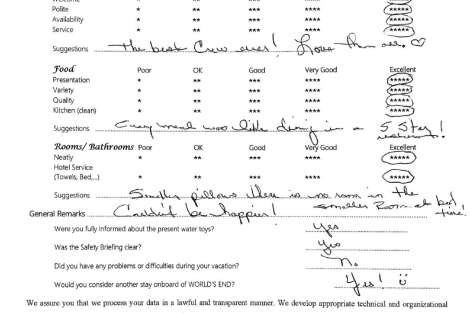 Polite * ** *** **** *****
Availability * ** *** **** *****
Service * ** *** **** *****
Suggestions The best Crew ever! Love them all. ♡
Food Poor OK Good Very Good Excellent
Presentation * ** *** **** *****
Variety * ** *** **** *****
Quality * ** *** **** *****
Kitchen (clean) * ** *** **** *****
Suggestions Every meal was like dining in a 5 Star
Rooms/ Bathrooms Poor OK Good Very Good Excellent
Neatly * ** *** **** *****
Hotel Service
(Towels, Bed,..) * ** *** **** *****
Suggestions Smaller pillows there is no room in the
smaller Room at bed
time!
General Remarks Couldn't be happier!
Were you fully informed about the present water toys? Yes
Was the Safety Briefing clear? Yes
Did you have any problems or difficulties during your vacation? No
Would you consider another stay onboard of WORLD'S END? Yes! ☺
We assure you that we process your data in a lawful and transparent manner. We develop appropriate technical and organizational